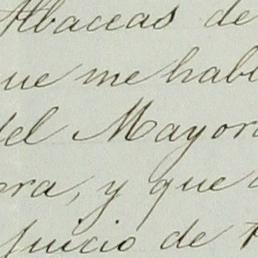 Albaceas de
que me habi
del Mayora
era, y que
juicio de